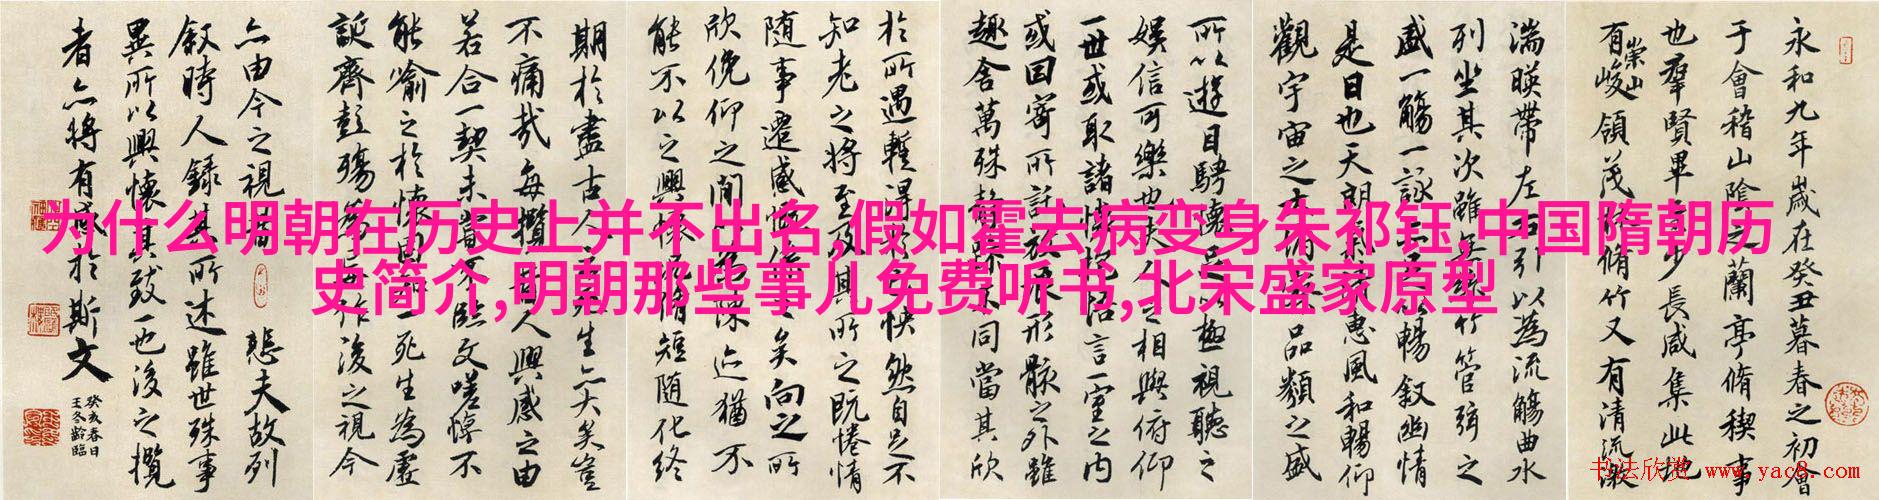 永和九年歲在癸丑暮春之初會
于會稽山陰之蘭亭脩稧事
也羣賢畢至少長咸集此地
有崇山峻領茂林脩竹又有清流激
湍暎帶左右引以為流觴曲水
列坐其次雖無絲竹管弦之
盛一觴一詠亦足以暢敘幽情
是日也天朗氣清惠風和暢仰
觀宇宙之大俯察品類之盛
所以遊目騁懷足以極視聽之
娛信可樂也夫人之相與俯仰
一世或取諸懷抱悟言一室之內
或因寄所託放浪形骸之外雖
趣舍萬殊靜躁不同當其欣
於所遇暫得於己怏然自足不
知老之將至及其所之既惓情
随事遷感慨係之矣向之所
欣俛仰之間以為陳迹猶不
能不以之興懷況脩短随化終
期於盡古人云死生亦大矣豈
不痛哉每攬昔人興感之由
若合一契未嘗不臨文嗟悼不
能喻之於懷固知一死生為虛
誕齊彭殤為妄作後之視今
亦由今之視昔悲夫故列
敘時人錄其所述雖世殊事
異所以興懷其致一也後之攬
者亦將有感於斯文
癸亥春日
王冬齡臨
为什么明朝在历史上并不出名,假如霍去病变身朱祁钰,中国隋朝历
史简介,明朝那些事儿免费听书,北宋盛家原型
书法欣赏 www.yac8.com